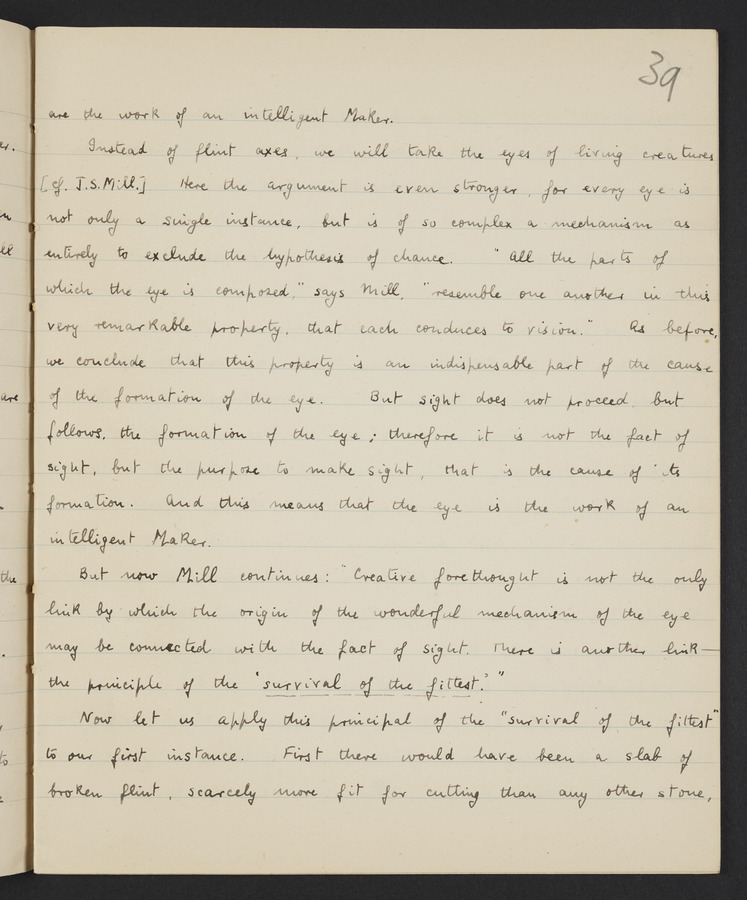 39
are the work of an intelligent Maker.
Instead of flint axes, we will take the eyes of living creatures
[cf. J.S.Mill.] Here the argument is even stronger, for every eye is
not only a single instance, but is of so complex a mechanism as
entirely to exclude the hypothesis of chance. "All the parts of
which the eye is composed," says Mill, "resemble one another in this
very remarkable property, that each conduces to vision." As before,
we conclude that this property is an indispensable part of the cause
of the formation of the eye. But sight does not proceed, but
follows, the formation of the eye; therefore it is not the fact of
sight, but the purpose to make sight, that is the cause of its
formation. And this means that the eye is the work of an
intelligent Maker.
But now Mill continues: "Creative forethought is not the only
link by which the origin of the wonderful mechanism of the eye
may be connected with the fact of sight. There is another link—
the principle of the 'survival of the fittest.'"
Now let us apply this principal of the "survival of the fittest"
to our first instance. First there would have been a slab of
broken flint, scarcely more fit for cutting than any other stone,